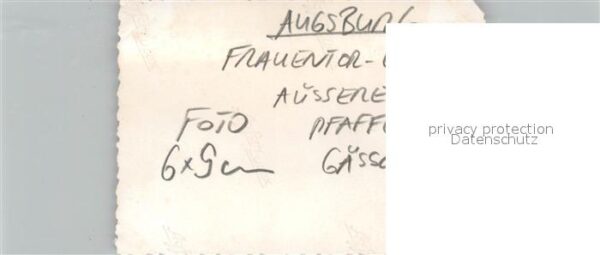 AUGSBURG
FRAUENTOR-
ÄUSSERE
FOTO PFAFF
6x9cm GÄSSC
privacy protection
Datenschutz